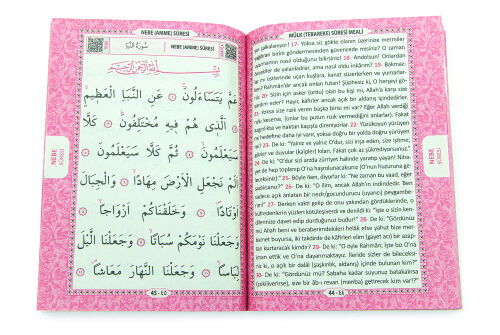 NEBE (AMME) SÛRESİ
سُورَةُ النَّبَأِ
NEBE (AMME) SÛRESİ
عَمَّ يَتَسَاءَلُونَ ﴿١﴾ عَنِ النَّبَأِ الْعَظِيمِ
﴿٢﴾ الَّذِى هُمْ فِيهِ مُخْتَلِفُونَ ﴿٣﴾ كَلَّا
سَيَعْلَمُونَ ﴿٤﴾ ثُمَّ كَلَّا سَيَعْلَمُونَ ﴿٥﴾
اَلَمْ نَجْعَلِ الْاَرْضَ مِهَادًا ﴿٦﴾ وَالْجِبَالَ
اَوْتَادًا ﴿٧﴾ وَخَلَقْنَاكُمْ اَزْوَاجًا ﴿٨﴾
وَجَعَلْنَا نَوْمَكُمْ سُبَاتًا ﴿٩﴾ وَجَعَلْنَا الَّيْلَ
لِبَاسًا ﴿١٠﴾ وَجَعَلْنَا النَّهَارَ مَعَاشًا ﴿١١﴾
45 - ٤٥
NEBE
SÛRESİ
MÜLK (TEBAREKE) SÛRESİ MEALİ
17- Yoksa siz gökte olanın üzerinize mermiler
yağdıran birini göndermesinden güvencede misiniz? O zaman
tehdidimin nasıl olduğunu bileceksiniz! 18- Andolsun! Onlardan
öncekiler de yalanladılar, ama nasıl oldu inkârım? 19- Bakmaz-
lar mı üzerlerinde uçan kuşlara, kanat süzerlerken ve yumarlar-
ken? Rahmân'dır ancak onları tutan! Şüphesiz ki, O herşeyi hep
görendir. 20- Sizin için asker (ordu) olan bu kişi mi, Allah'a karşı size
yardım eden? Hayır, kâfirler ancak açık bir aldanış içindedirler.
21- Yoksa size rızık veren başka birisi mi var? Eğer Allah verdiği
rızkı keserse, (onlar bu putun rızık vermediğini anlarlar). Hayır,
azgınlıkta ve haktan kaçışta direniyorlar. 22- Yüzükoyun yürüyen
mi hedefine daha iyi varır, yoksa doğru bir yolda doğru yürüyen
mi? 23- De ki: "Yalnız O'dur, sizi inşa eden, size işitme,
gözler ve duyular (kalpler) kılan. Fakat çok az şükrediyorsunuz."
24- De ki: "O'dur sizi arzda zürriyet halinde yaratıp yayan! Niha-
yet de hep toplanıp O'na haşrolunacaksınız (O'nun huzuruna gi-
deceksiniz)." 25- Böyle iken, diyorlar ki: "Ne zaman bu vaad, eğer
sadıksanız?" 26- De ki: "O ilim, ancak Allah'ın indindedir. Ben
sadece açık anlatan bir nezîr/gocunduran (uyarıcı) peygambe-
rim!" 27- Derken vakti gelip de onu yakından gördüklerinde, o
küfredenlerin yüzleri kötüleşiverdi ve denildi ki: "İşte o sizin ken-
dilerinize davet edip durduğunuz budur!" 28- De ki: "Gördünüz
mü Allah beni ve beraberimdekileri helâk etse yahut bize mer-
hamet buyursa, iki takdirde de kâfirleri elim (gayet acı) bir azap-
tan kurtaracak kimdir?" 29- De ki: "O öyle Rahmân; işte biz O'na
iman ettik ve O'na dayanmaktayız. İleride sizler de bilecekesi-
niz ki, o açık bir dalâl (şaşkınlık, aldanış) içinde bulunan kim?"
30- De ki: "Gördünüz mü? Sabaha kadar suyunuz batakalırsa
(çekiliverirse), size bir âb-ı revan (menba) getirecek kim var?"
44 - ٤٤
NEBE
SÛRESİ